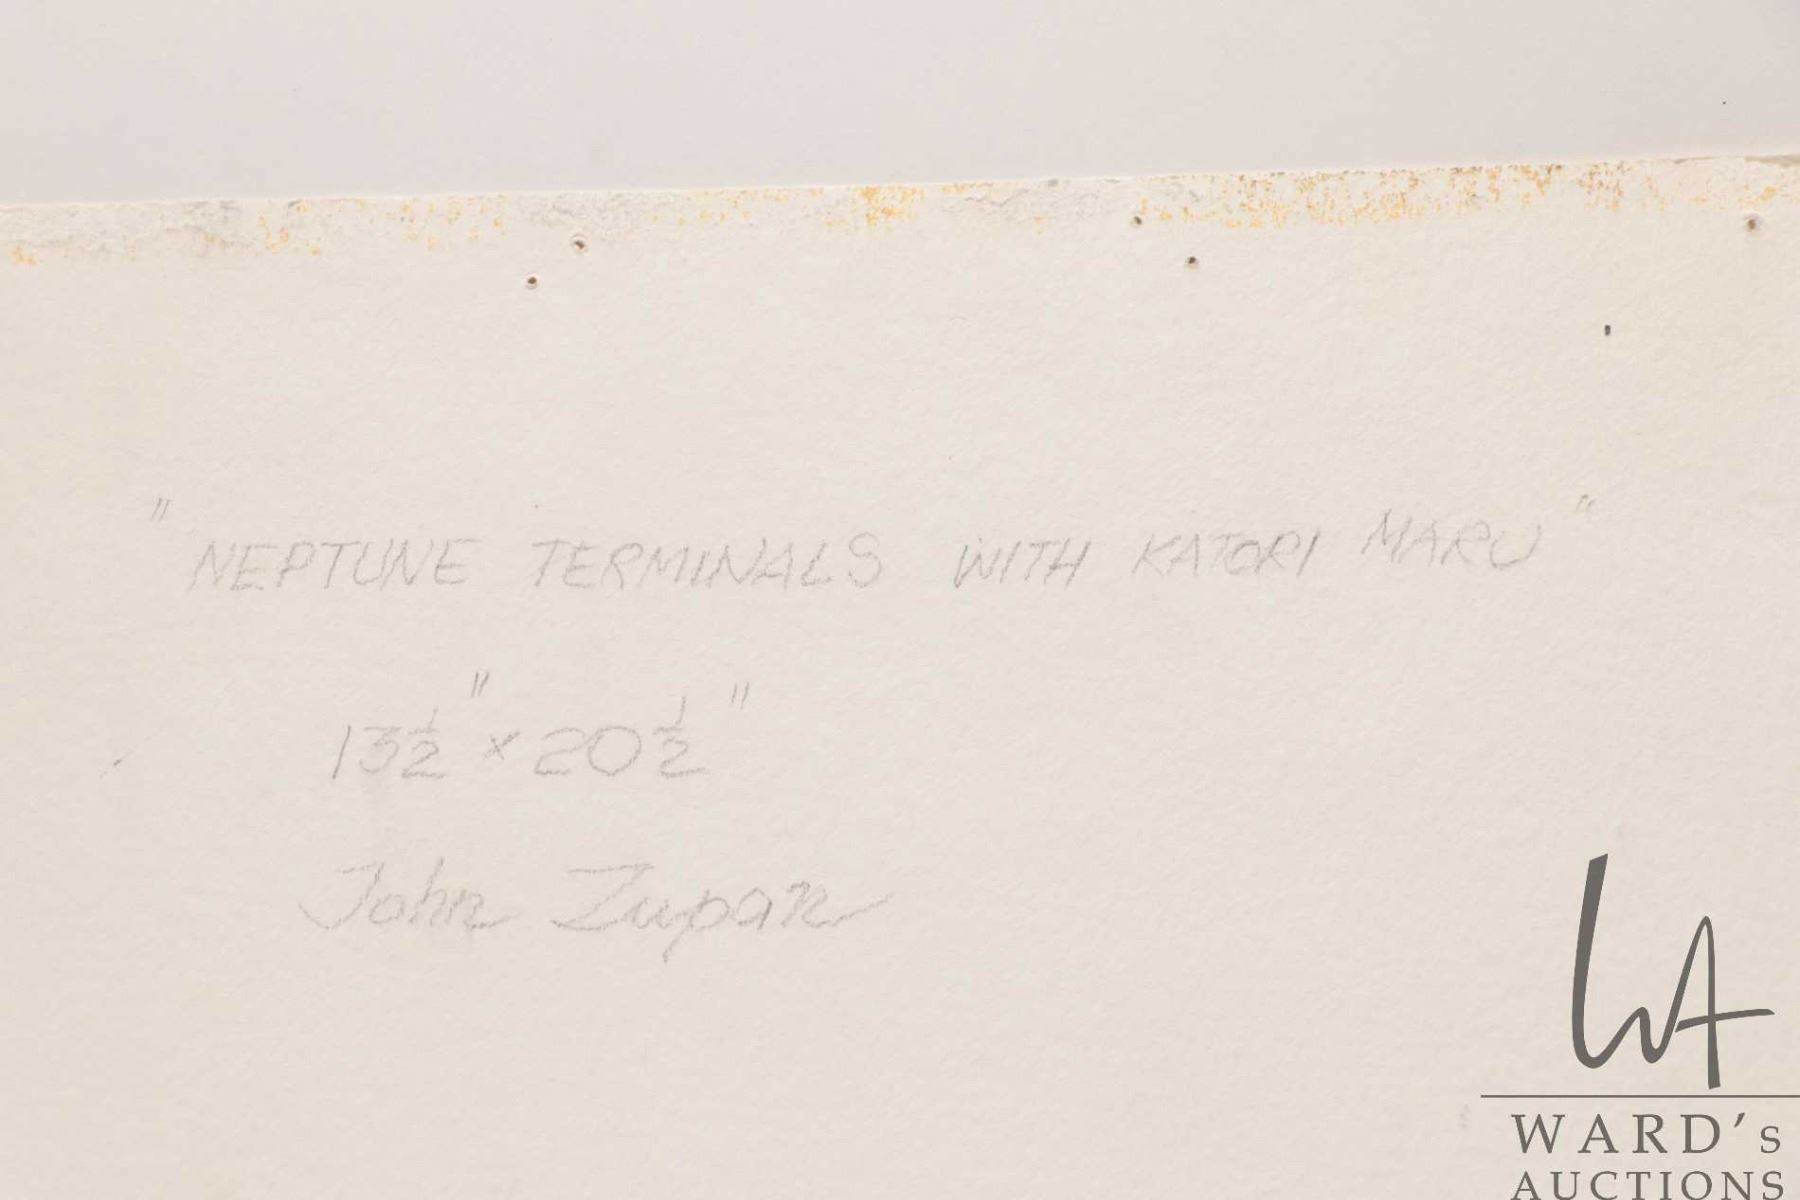 "NEPTUNE TERMINALS WITH KATORI MARU"
13½" x 20½"
John Zupan
WARD's
AUCTIONS